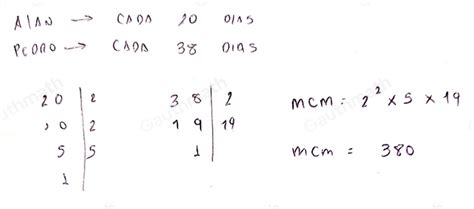 ALAN → CADA 20 DIAS
PEDRO → CADA 38 DIAS
20 | 2
10 | 2
5 | 5
1 |
38 | 2
19 | 19
1 |
MCM = 2² × 5 × 19
MCM = 380